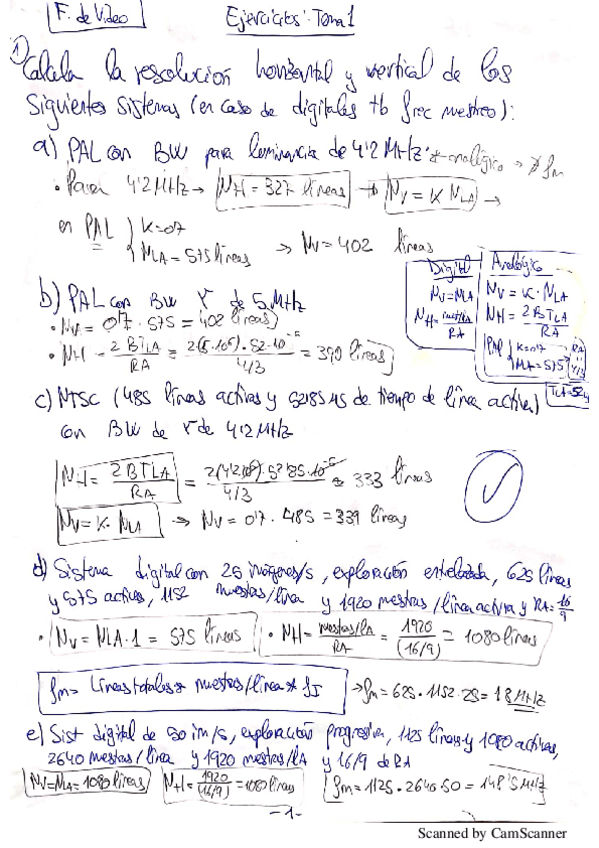 F. de Video
Ejercicios: Tema 1
1) Calcula la resolución horizontal y vertical de los
siguientes sistemas (en caso de digitales tb frec muestreo):
a) PAL con BW para luminancia de 4'2 MHz *analógico → ∄ fm
• Para 4'2 MHz → NH = 327 líneas → NV = K NLA →
en PAL { K=0'7
NLA = 575 líneas → NV = 402 líneas
Digital
NV = NLA
NH = muest/LA / RA
Analógico
NV = K · NLA
NH = 2BTLA / RA
PAL { K=0'7
NLA=575
RA 4/3
TLA=52
b) PAL con BW Y de 5 MHz
• NV = 0'7 · 575 = 402 líneas
• NH = 2BTLA / RA = 2(5·10⁶)·52·10⁻⁶ / 4/3 = 390 líneas
c) NTSC (485 líneas activas y 52'85 μs de tiempo de línea activa)
con BW de Y de 4'2 MHz
NH = 2BTLA / RA = 2(4'2·10⁶)·52'85·10⁻⁶ / 4/3 ≈ 333 líneas
NV = K · NLA → NV = 0'7 · 485 = 339 líneas
d) Sistema digital con 25 imágenes/s, exploración entrelazada, 625 líneas
y 575 activas, 1152 muestras/línea y 1920 muestras/línea activa y RA = 16/9
• NV = NLA · 1 = 575 líneas • NH = muestras/LA / RA = 1920 / (16/9) = 1080 líneas
fm = Líneas totales * muestras/línea * fI → fm = 625 · 1152 · 25 = 18 MHz
e) Sist digital de 50 im/s, exploración progresiva, 1125 líneas y 1080 activas,
2640 muestras/línea y 1920 muestras/LA y 16/9 de RA
NV = NLA = 1080 líneas NH = 1920 / (16/9) = 1080 líneas fm = 1125 · 2640 · 50 = 148'5 MHz
- 1 -
Scanned by CamScanner